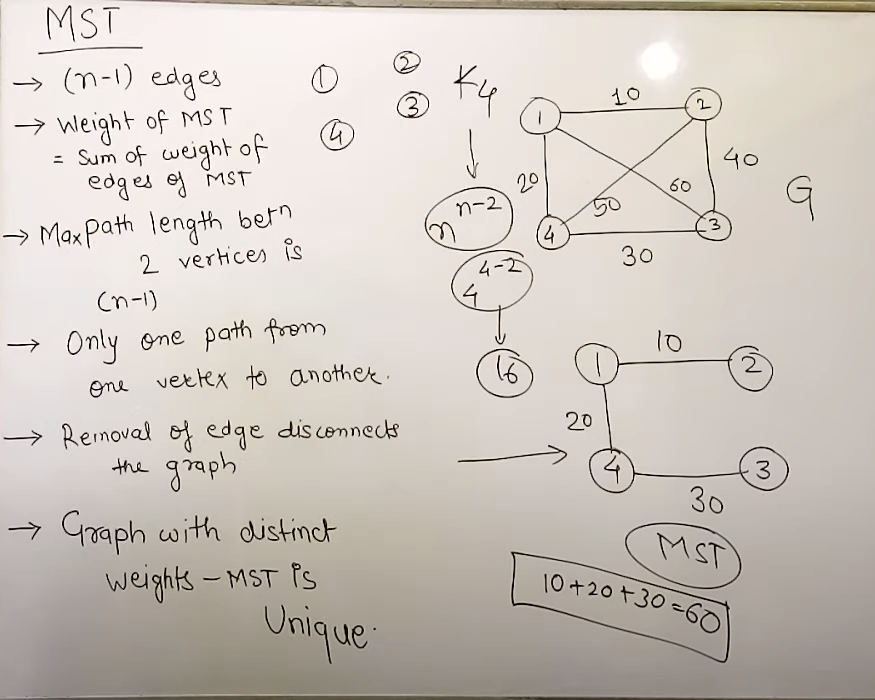 MST
→ (n-1) edges
→ Weight of MST
= Sum of weight of
edges of MST
→ Max path length betn
2 vertices is
(n-1)
→ Only one path from
one vertex to another.
→ Removal of edge disconnects
the graph
→ Graph with distinct
weights - MST is
Unique.
① ②
④ ③
K4
n^{n-2}
4^{4-2}
16
1 10 2
20 50 60 40
4 30 3
G
1 10 2
20
4 30 3
MST
10+20+30=60